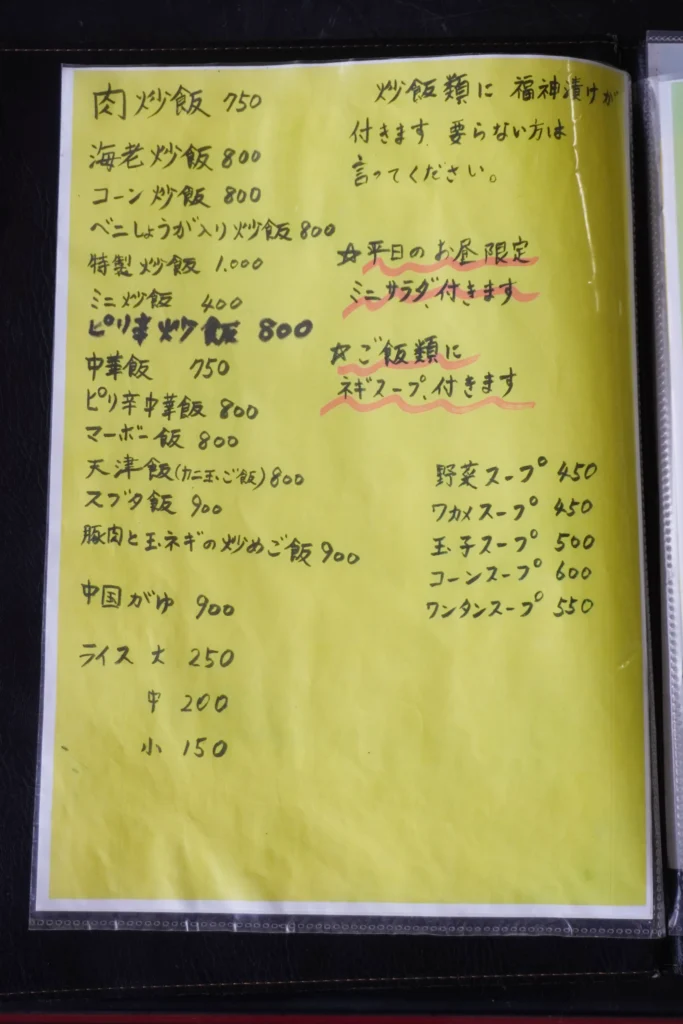 肉炒飯 750
海老炒飯 800
コーン炒飯 800
ベニしょうが入り炒飯 800
特製炒飯 1.000
ミニ炒飯 400
ピリ辛炒飯 800
中華飯 750
ピリ辛中華飯 800
マーボー飯 800
天津飯(カニ玉ご飯) 800
スブタ飯 900
豚肉と玉ネギの炒めご飯 900
中国がゆ 900
ライス 大 250
中 200
小 150
炒飯類に 福神漬けが
付きます 要らない方は
言ってください。
☆平日のお昼限定
ミニサラダ付きます
☆ご飯類に
ネギスープ付きます
野菜スープ 450
ワカメスープ 450
玉子スープ 500
コーンスープ 600
ワンタンスープ 550